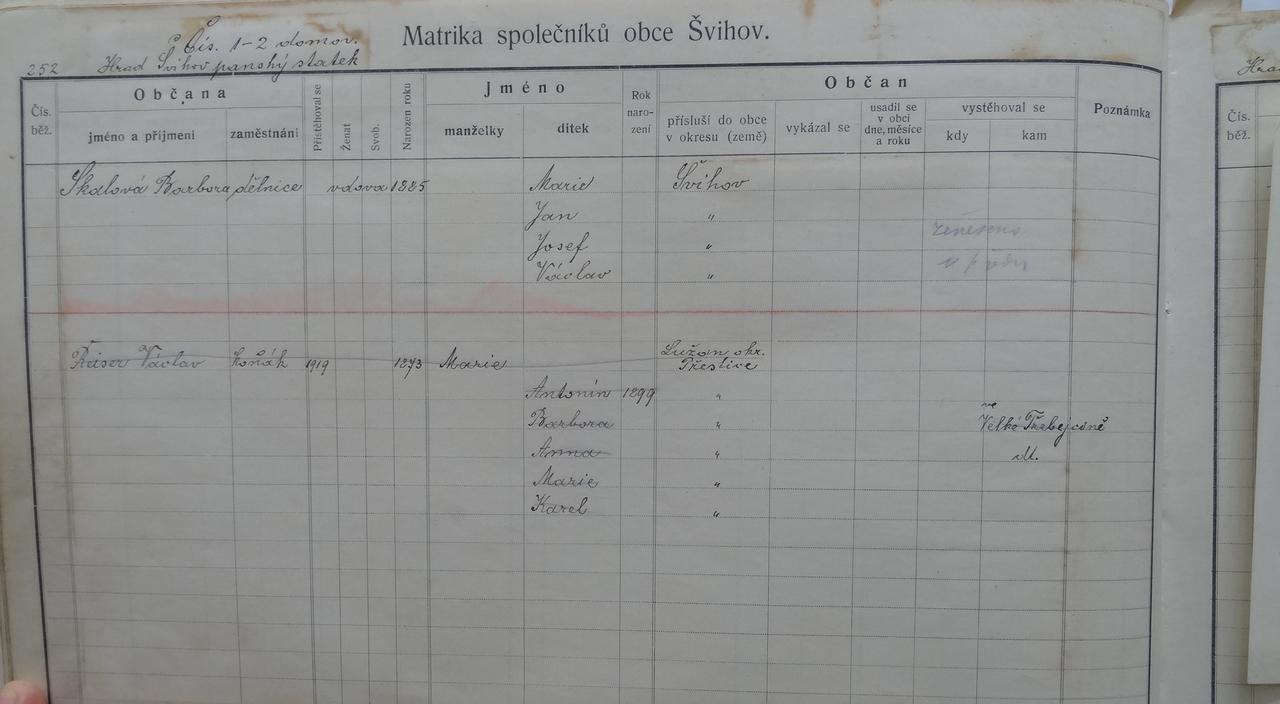 Čís. 1-2 domov.
Hrad Švihov panský statek
252
Matrika společníků obce Švihov.
Čís. běž.
Občana
jméno a příjmení
zaměstnání
Přistěhoval se
Ženat
Svob.
Narozen roku
Jméno
manželky
dítek
Rok naro- zení
Občan
přísluší do obce v okresu (země)
vykázal se
usadil se v obci dne, měsíce a roku
vystěhoval se
kdy
kam
Poznámka
Čís. běž.
Skalová Barbora dělnice vdova 1885 Marie Švihov
Jan "
Josef "
Václav "
Reiser Václav koňák 1919 1873 Marie Lužan okr. Přestice
Antonín 1899 "
Barbora " ve Velké
Anna " dt.
Marie "
Karel "